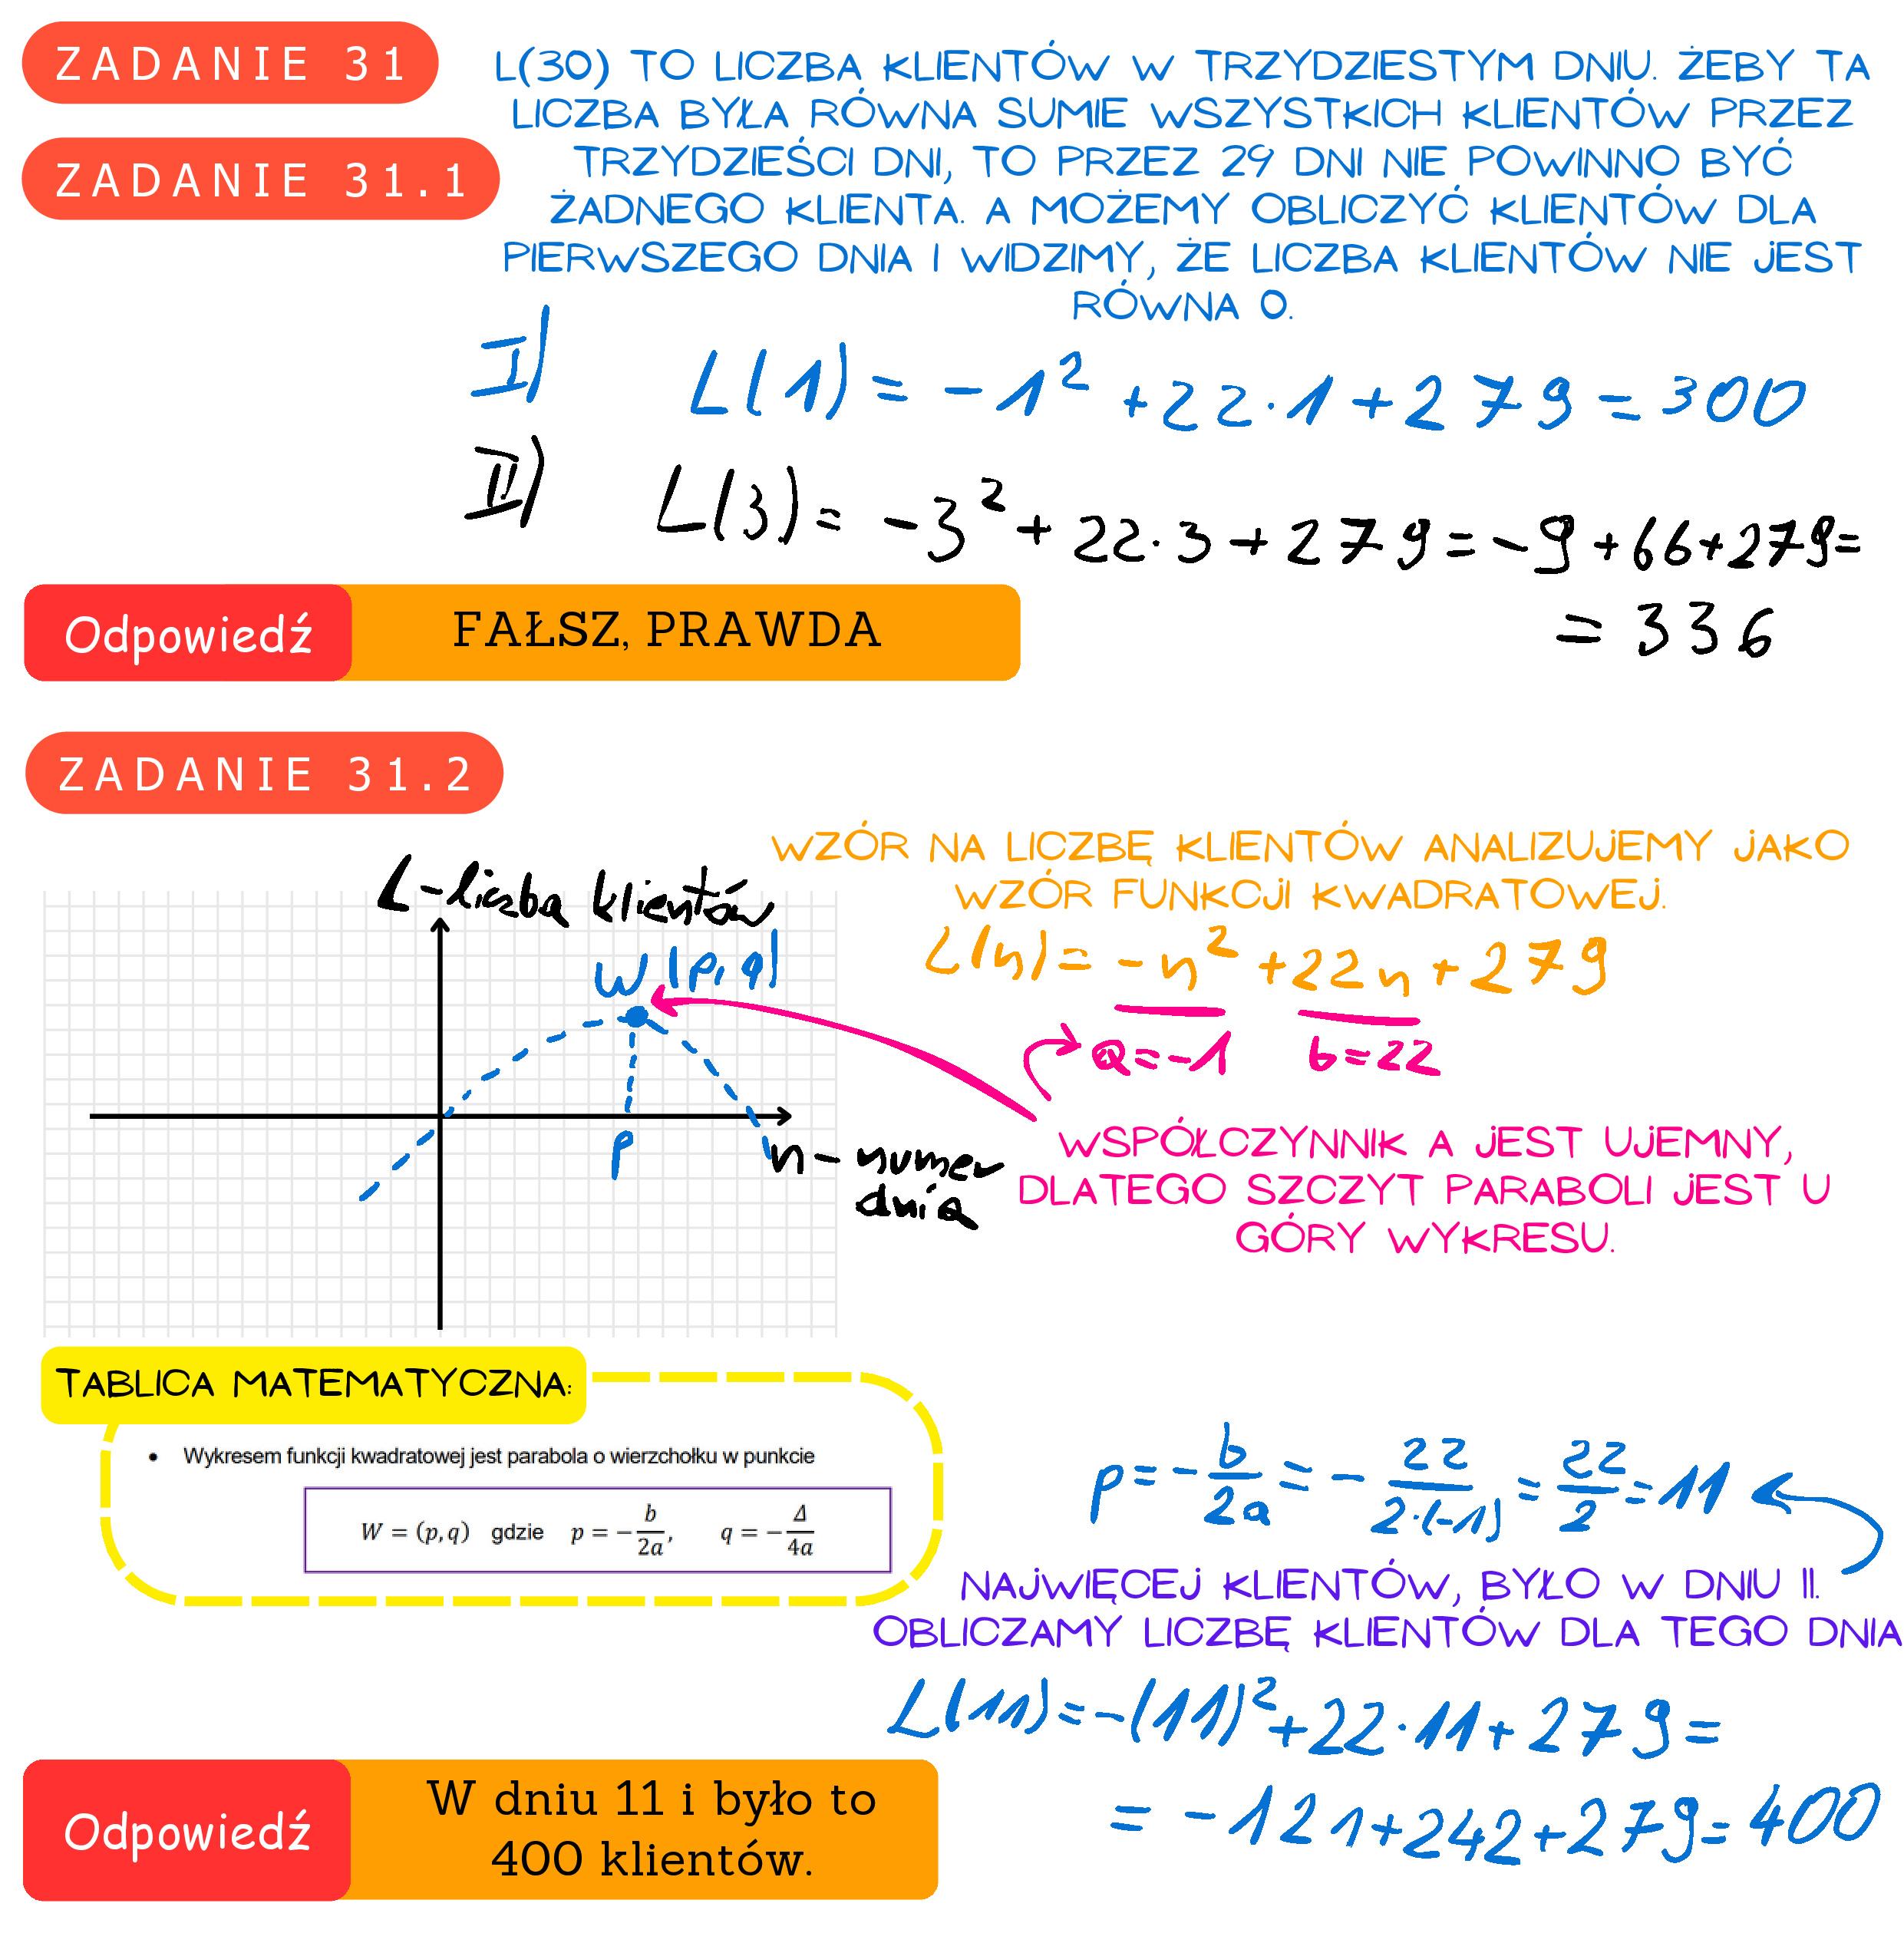 ZADANIE 31
ZADANIE 31.1
L(30) TO LICZBA KLIENTÓW W TRZYDZIESTYM DNIU. ŻEBY TA
LICZBA BYŁA RÓWNA SUMIE WSZYSTKICH KLIENTÓW PRZEZ
TRZYDZIEŚCI DNI, TO PRZEZ 29 DNI NIE POWINNO BYĆ
ŻADNEGO KLIENTA. A MOŻEMY OBLICZYĆ KLIENTÓW DLA
PIERWSZEGO DNIA I WIDZIMY, ŻE LICZBA KLIENTÓW NIE JEST
RÓWNA 0.
I) L(1) = -1² + 22·1 + 279 = 300
II) L(3) = -3² + 22·3 + 279 = -9 + 66 + 279 =
= 336
Odpowiedź FAŁSZ, PRAWDA
ZADANIE 31.2
WZÓR NA LICZBĘ KLIENTÓW ANALIZUJEMY JAKO
WZÓR FUNKCJI KWADRATOWEJ.
L(n) = -n² + 22n + 279
a=-1 b=22
WSPÓŁCZYNNIK A JEST UJEMNY,
DLATEGO SZCZYT PARABOLI JEST U
GÓRY WYKRESU.
L-liczba klientów
W(p,q)
p
n-numer
dnia
TABLICA MATEMATYCZNA:
• Wykresem funkcji kwadratowej jest parabola o wierzchołku w punkcie
W = (p, q) gdzie p = -b/2a, q = -Δ/4a
p = -b/2a = -22/2·(-1) = 22/2 = 11
NAJWIĘCEJ KLIENTÓW, BYŁO W DNIU 11.
OBLICZAMY LICZBĘ KLIENTÓW DLA TEGO DNIA
L(11) = -(11)² + 22·11 + 279 =
= -121 + 242 + 279 = 400
Odpowiedź W dniu 11 i było to
400 klientów.